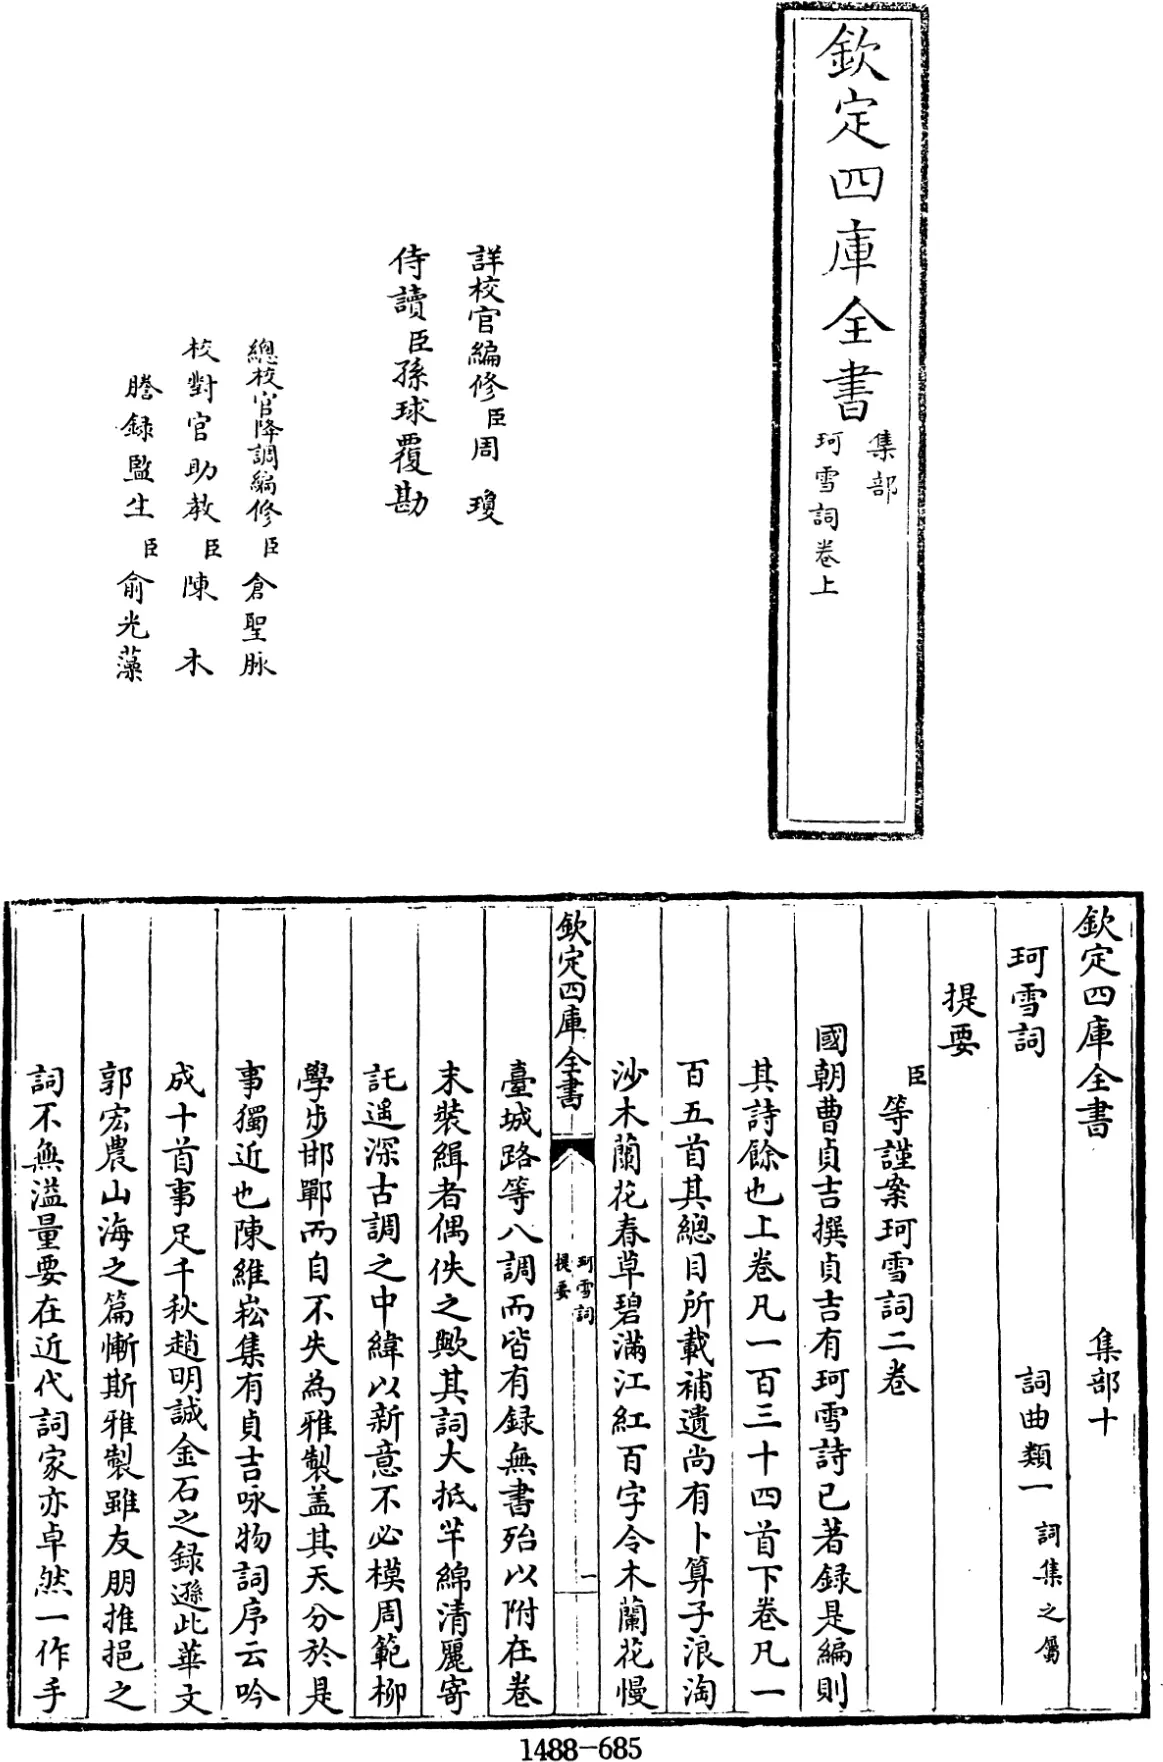 欽定四庫全書
集部
珂雪詞卷上
詳校官編修臣周瓊
侍讀臣孫球覆勘
總校官降調編修臣倉聖脉
校對官助教臣陳木
謄録監生臣俞光藻
欽定四庫全書 集部十
珂雪詞 詞曲類一 詞集之屬
提要
臣等謹案珂雪詞二卷
國朝曹貞吉撰貞吉有珂雪詩已著録是編則
其詩餘也上卷凡一百三十四首下卷凡一
百五首其總目所載補遺尚有卜算子浪淘
沙木蘭花春草碧滿江紅百字令木蘭花慢
欽定四庫全書
珂雪詞
提要
一
臺城路等八調而皆有録無書殆以附在卷
末裝緝者偶佚之歟其詞大抵芊綿清麗寄
託遥深古調之中緯以新意不必模周範柳
學步邯鄲而自不失為雅製盖其天分於是
事獨近也陳維崧集有貞吉咏物詞序云吟
成十首事足千秋趙明誠金石之録遜此華文
郭宏農山海之篇慚斯雅製雖友朋推挹之
詞不無溢量要在近代詞家亦卓然一作手
1488-685